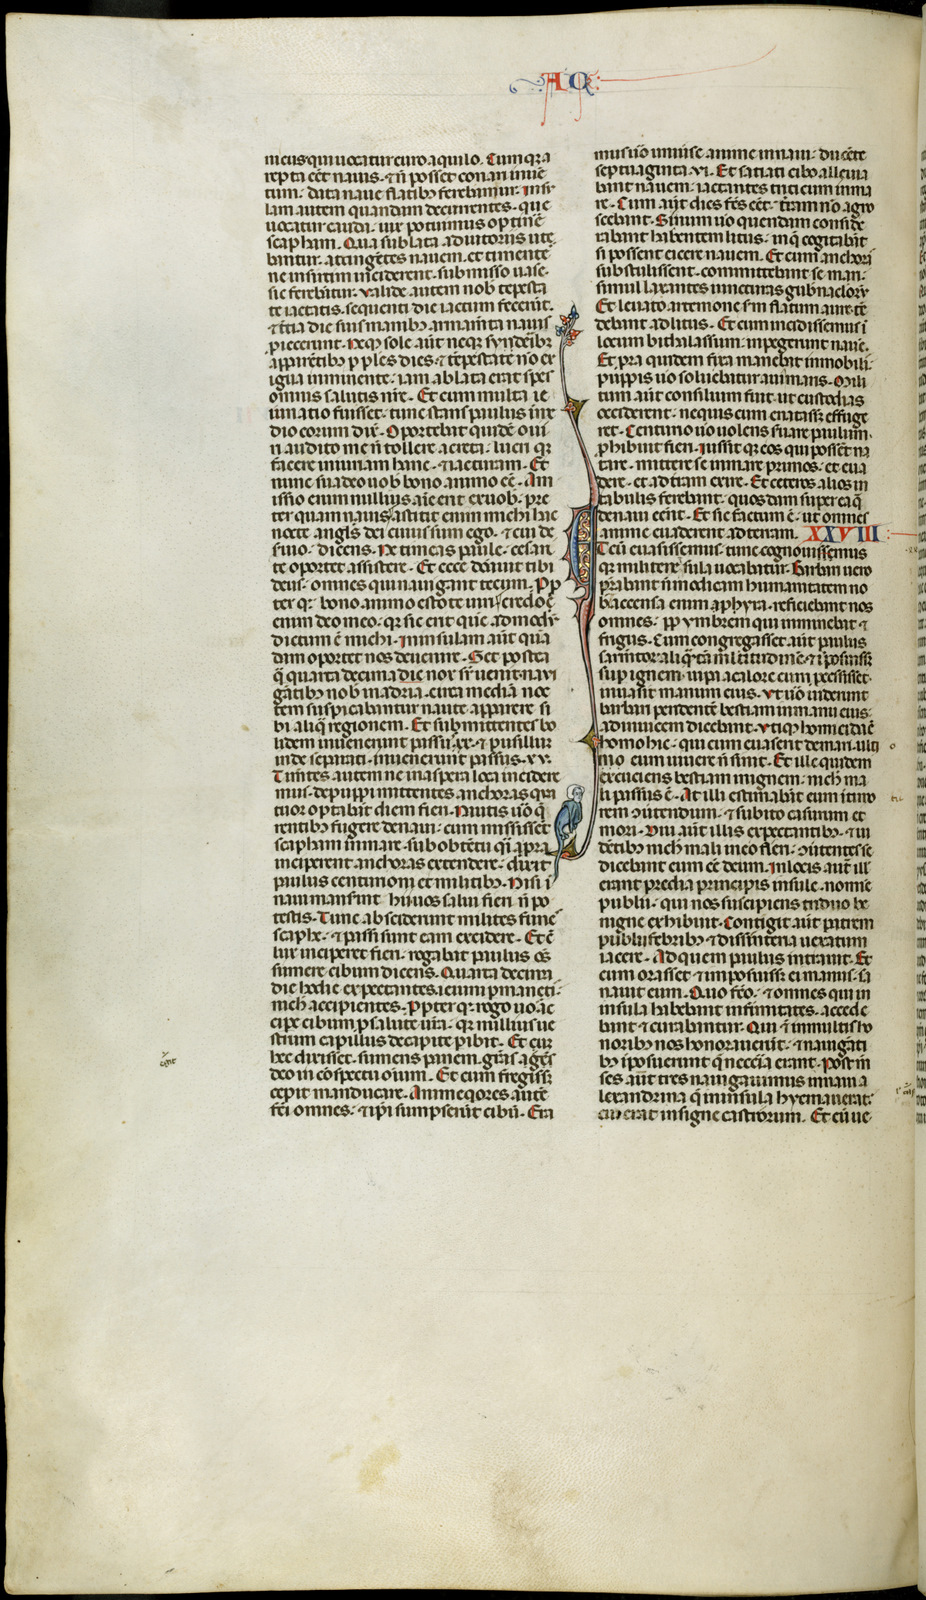 A Q
nicus qui uocatur euro aquilo. Cumq3 a
repta eēt nauis. ⁊ ñ posset conari in uē
tum. data naue flatib3 ferebamur. Insu
lam autem quandam decurrentes. que
uocatur cauda. uix potuimus optinē
scapham. Qua sublata adiutoriis ute
bantur. accingētes nauem. et timente
ne in sirtim inciderent. submisso uase.
sic ferebātur. Valide autem nob tēpesta
te iactatis. sequenti die iactum fecerūt.
⁊ tīa die suis manib3 armamta nauis
ꝓiecerunt. Neq3 sole aūt neq3 syderib3
apparētib3 p ples dies. ⁊ tēpestate nō ex
igua inminente. iam ablata erat spes
omnis salutis nr̄e. Et cum multa ie
iunatio fuisset. tunc stans paulus in me
dio eorum dix̄. Oportebat quidē o uiri
audito me ñ tollere a creta. lucri q3
facere iniuriam hanc. ⁊ iacturam. Et
nunc suadeo uob bono animo eē. Am
issio enim nullius aīe erit ex uob. pre
ter quam nauis. astitit enim michi hac
nocte angls dei cuius sum ego. ⁊ cui de
seruio. dicens. Ne timeas paule. cesari
te oportet assistere. Et ecce donauit tibi
deus. omnes qui nauigant tecum. Pp
ter qd bono animo estote uiri. credo
enim deo meo. qr sic erit que admodū
dictum ē michi. In insulam aūt quā
dam oportet nos deuenire. Set postea
q̄ quarta decima die nox suꝑuenit. naui
gātib3 nob in adria. circa mediā noc
tem suspicabantur naute apparere si
bi aliq̄ regionem. Et submittentes bo
lidem inuenerunt passus xx. ⁊ pusillum
inde separati. inuenerunt passus. xv.
Timētes autem ne in aspera loca incidere
mus. de puppi mittentes anchoras qua
tuor optabāt diem fieri. Nautis uō q̄
rentib3 fugere de naui. cum misissēt
scapham in mare. sub obtētu q̄i a prora
inciperent anchoras extendere. dixit
paulus centurioni et militib3. Nisi i
naui manserint hii. uos salui fieri ñ po
testis. Tunc absciderunt milites funes
scaphe. ⁊ passi sunt eam excidere. Et cū
lux inciperet fieri. rogabat paulus oēs
sumere cibum dicens. Quarta decima
die hodie expectantes ieiuni pmaneti.
nich accipientes. Ppter qd rogo uos ac
cipe cibum p salute ur̄a. qr nullius ue
strum capillus de capite pibit. Et cum
hec dixisset. sumens panem. grās agēs
deo in cōspectu oīum. Et cum fregiss3
cepit manducare. Animeqores aute
fci omnes. ⁊ ipi sumpserūt cibū. Era
mus uō uniuise anime in naui. ducēte
septuaginta. vi. Et satiati cibo alleuia
bant nauem. iactantes triticum in ma
re. Cum aūt dies fcs eēt. tram nō agno
scebant. Sinum uō quendam conside
rabant habentem litus. in q̄ cogitabāt
si possent eicere nauem. Et cum anchoras
substulissent. committebant se mari.
simul laxantes iuncturas gubnaclorum
Et leuato artemone sm flatum aure. tē
debant ad litus. Et cum incidissemus i
locum bithalassum. inpegerunt nauē.
Et pra quidem fixa manebat immobili.
puppis uō soluebatur a ui maris. Mili
tum aūt consilium fuit. ut custodias
occiderent. nequis cum enatass3 effuge
ret. Centurio uō uolens suare paulum.
phibuit fieri. iussitq3 eos qui possēt na
tare. mittere se in mare primos. et eua
dere. et ad tram exire. Et ceteros alios in
tabulis ferebant. quosdam super ea q̄
de naui eēnt. Et sic factum ē. ut omnes
anime euaderent ad terram. XXVIII
Et cū euasissemus. tunc cognouissemus
qr militene insula uocabatur. Barbari uero
prabant ñ modicam humanitatem no
b. accensa enim a phyra. reficiebant nos
omnes. pp ymbrem qui imminebat ⁊
frigus. Cum congregasset aūt paulus
sarmtor aliq̄tā mltitudinē. ⁊ iposuiss3
sup ignem. uipa a calore cum pcessisset.
inuasit manum eius. Ut uō uiderunt
barbari pendentē bestiam in manu eius.
ad inuicem dicebant. Vtiq3 homicida ē
homo hic. qui cum euaserit de mari. ulti
nio eum uiuere ñ sinit. Et ille quidem
excuciens bestiam in ignem. nich ma
li passus ē. At illi estimabāt eum in tumo
rem cōuertendum. ⁊ subito casurum et
mori. Diu aūt illis expectantib3. ⁊ ui
dētib3 nich mali in eo fieri. cōuertentes se
dicebant eum eē deum. In locis aūt ill
erant predia principis insule. nomine
publii. qui nos suscipiens triduo be
nigne exhibuit. Contigit aūt patrem
publii febrib3 ⁊ dissinteria uexatum
iacere. Ad quem paulus intrauit. Et
cum orasset. ⁊ imposuiss3 ei manus. sa
nauit eum. Quo fco. ⁊ omnes qui in
insula habebant infirmitates. accede
bant ⁊ curabantur. Qui ⁊ in multis ho
norib3 nos honorauerūt. ⁊ nauigāti
b3 iposuerunt q̄ necc̄ia erant. Post m̄
ses aūt tres nauigauimus in naui a
lexandrina q̄ in insula hyemauerat.
cui erat insigne castrorum. Et cū ue